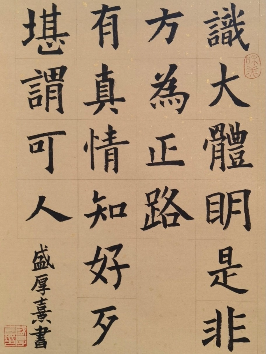 識大體明是非
方為正路
有真情知好歹
堪謂可人
盛厚熹書